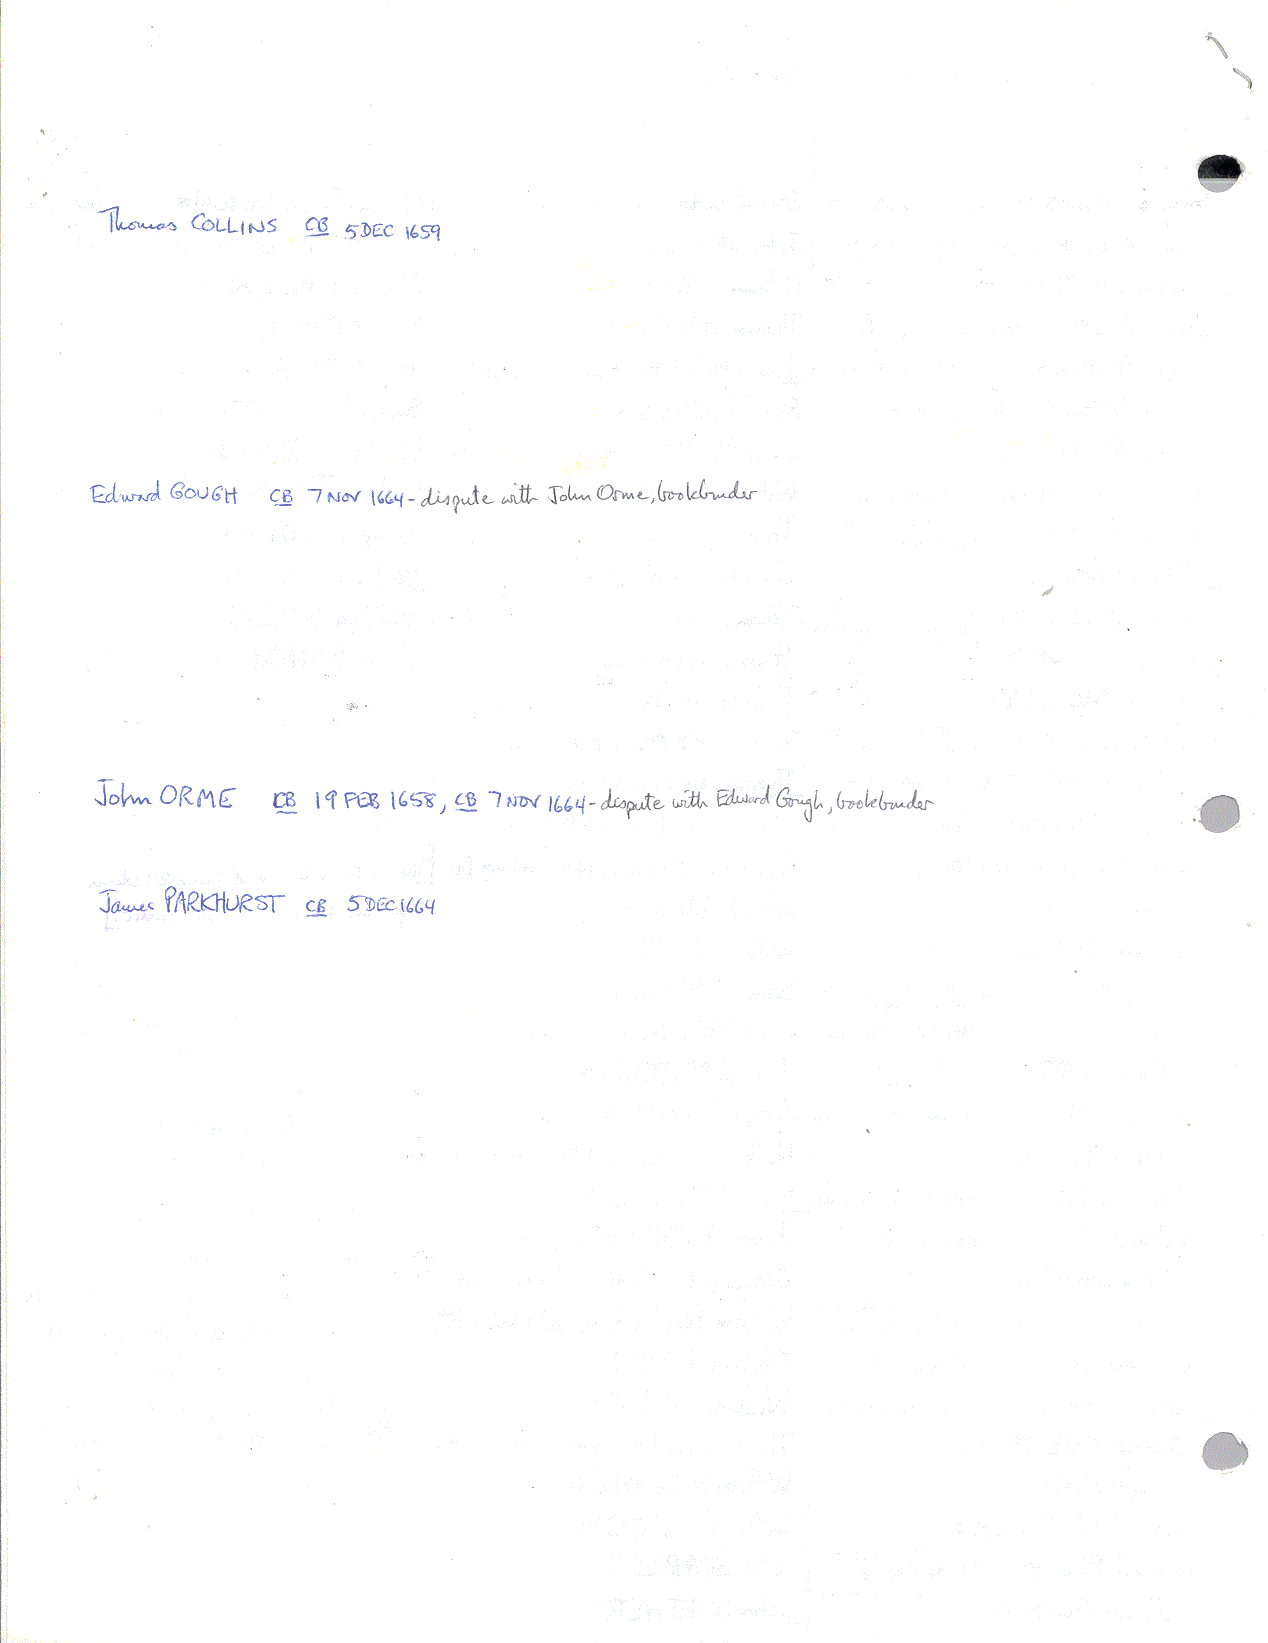 Thomas COLLINS CB 5 DEC 1659
Edward GOUGH CB 7 NOV 1664 - dispute with John Orme, bookbinder
John ORME CB 19 FEB 1658, CB 7 NOV 1664 - dispute with Edward Gough, bookbinder
James PARKHURST CB 5 DEC 1664